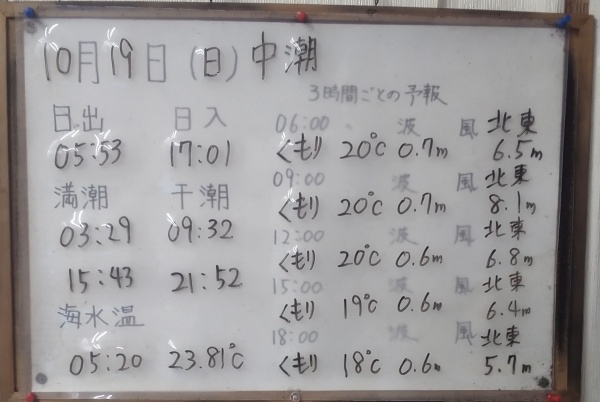 10月19日(日)中潮
3時間ごとの予報
日出 日入
05:53 17:01
満潮 干潮
03:29 09:32
15:43 21:52
海水温
05:20 23.81℃
06:00 波 風 北東
くもり 20℃ 0.7m 6.5m
09:00 波 風 北東
くもり 20℃ 0.7m 8.1m
12:00 波 風 北東
くもり 20℃ 0.6m 6.8m
15:00 波 風 北東
くもり 19℃ 0.6m 6.4m
18:00 波 風 北東
くもり 18℃ 0.6m 5.7m